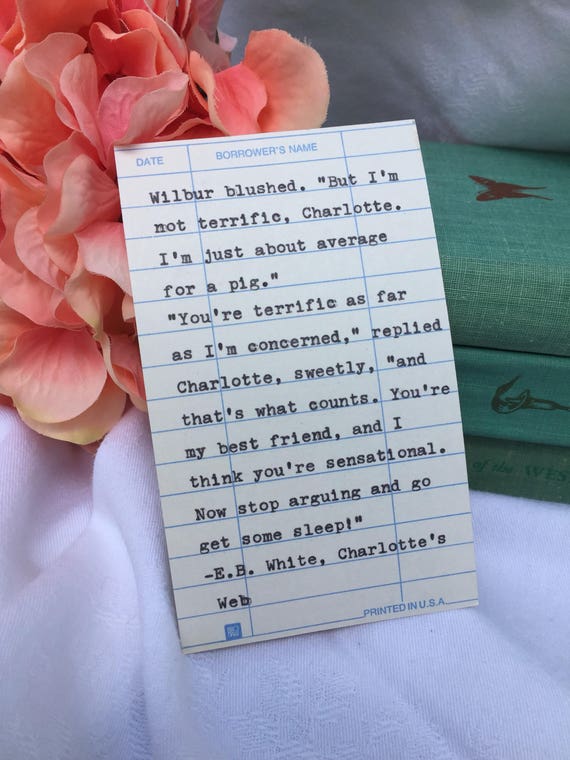 DATE BORROWER'S NAME
Wilbur blushed. "But I'm
not terrific, Charlotte.
I'm just about average
for a pig."
"You're terrific as far
as I'm concerned," replied
Charlotte, sweetly, "and
that's what counts. You're
my best friend, and I
think you're sensational.
Now stop arguing and go
get some sleep!"
-E.B. White, Charlotte's
Web
PRINTED IN U.S.A.
of the WES